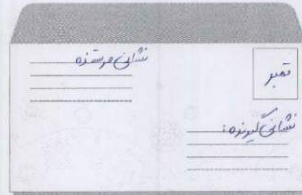 نشانی فرستنده
تمبر
نشانی گیرنده: